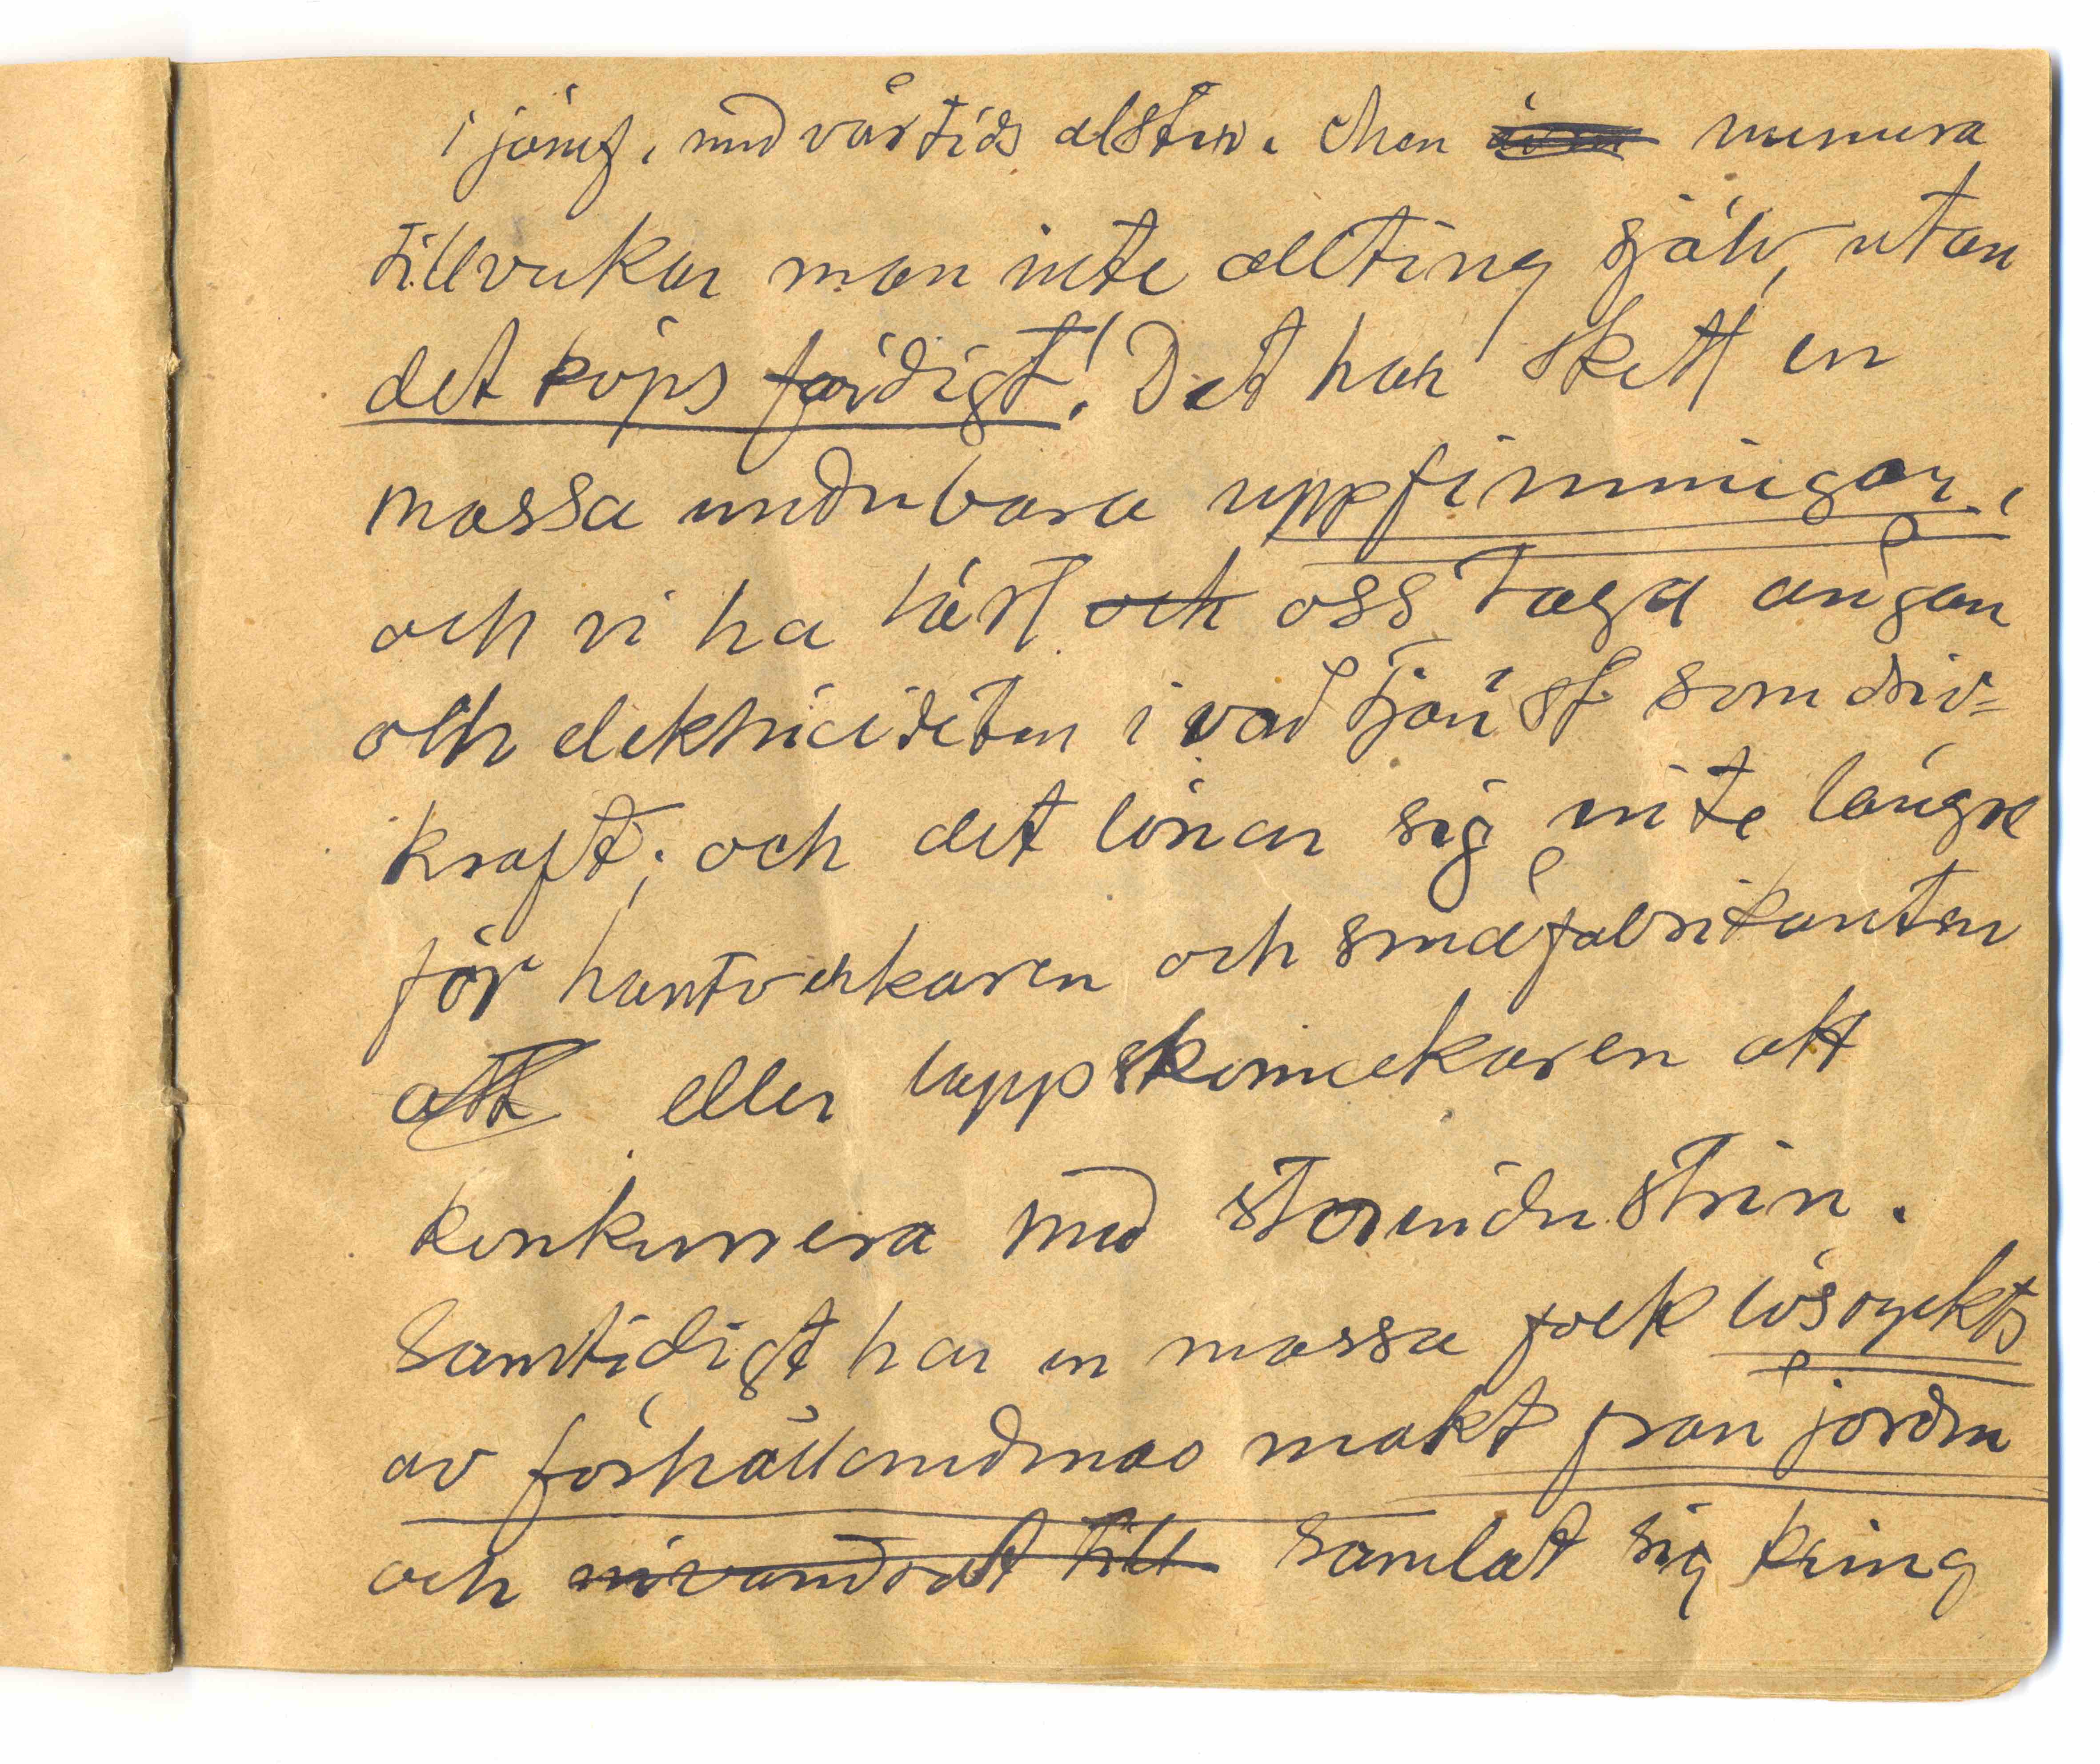 i jämf. med vår tids alster. Men numera
tillverkar man inte allting själv, utan
det köps färdigt! Det har skett en
massa underbara uppfinningar,
och vi ha lärt och oss taga ångan
och elektriciteten i vår tjänst som driv=
kraft; och det lönar sig inte längre
för hantverkaren och småfabrikanten
att eller lappskomakaren att
konkurrera med storindustrin.
Samtidigt har en massa folk lösryckts
av förhållandenas makt från jorden
och invandrat till samlat sig kring